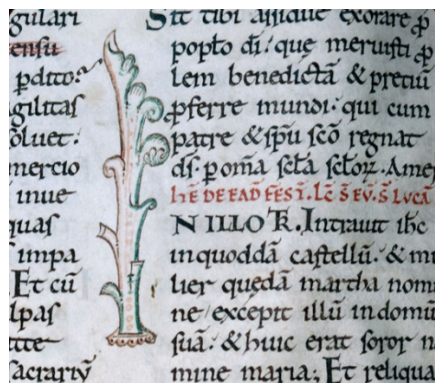 gulari
ensu
ꝑdito:
gilitas
soluet:
mercio
inue
quas
impa
Et cū
lpas
sacrariꝰ
Sit tibi assidue exorare ꝓ
popło dī. que meruisti ꝓ
lem benedictā & pretiū
ꝓferre mundi. qui cum
patre & sp̄u scō regnat
ds̄. ꝑ om̄a scl̄a scl̄oꝝ. Ame
DE EAD FEST.
N ILLO T̄. Intrauit ihc̄
in quoddā castellū. & mu
lier quedā martha nomi
ne excepit illū in domū
suā. & huic erat soror n
mine maria; Et reliqua